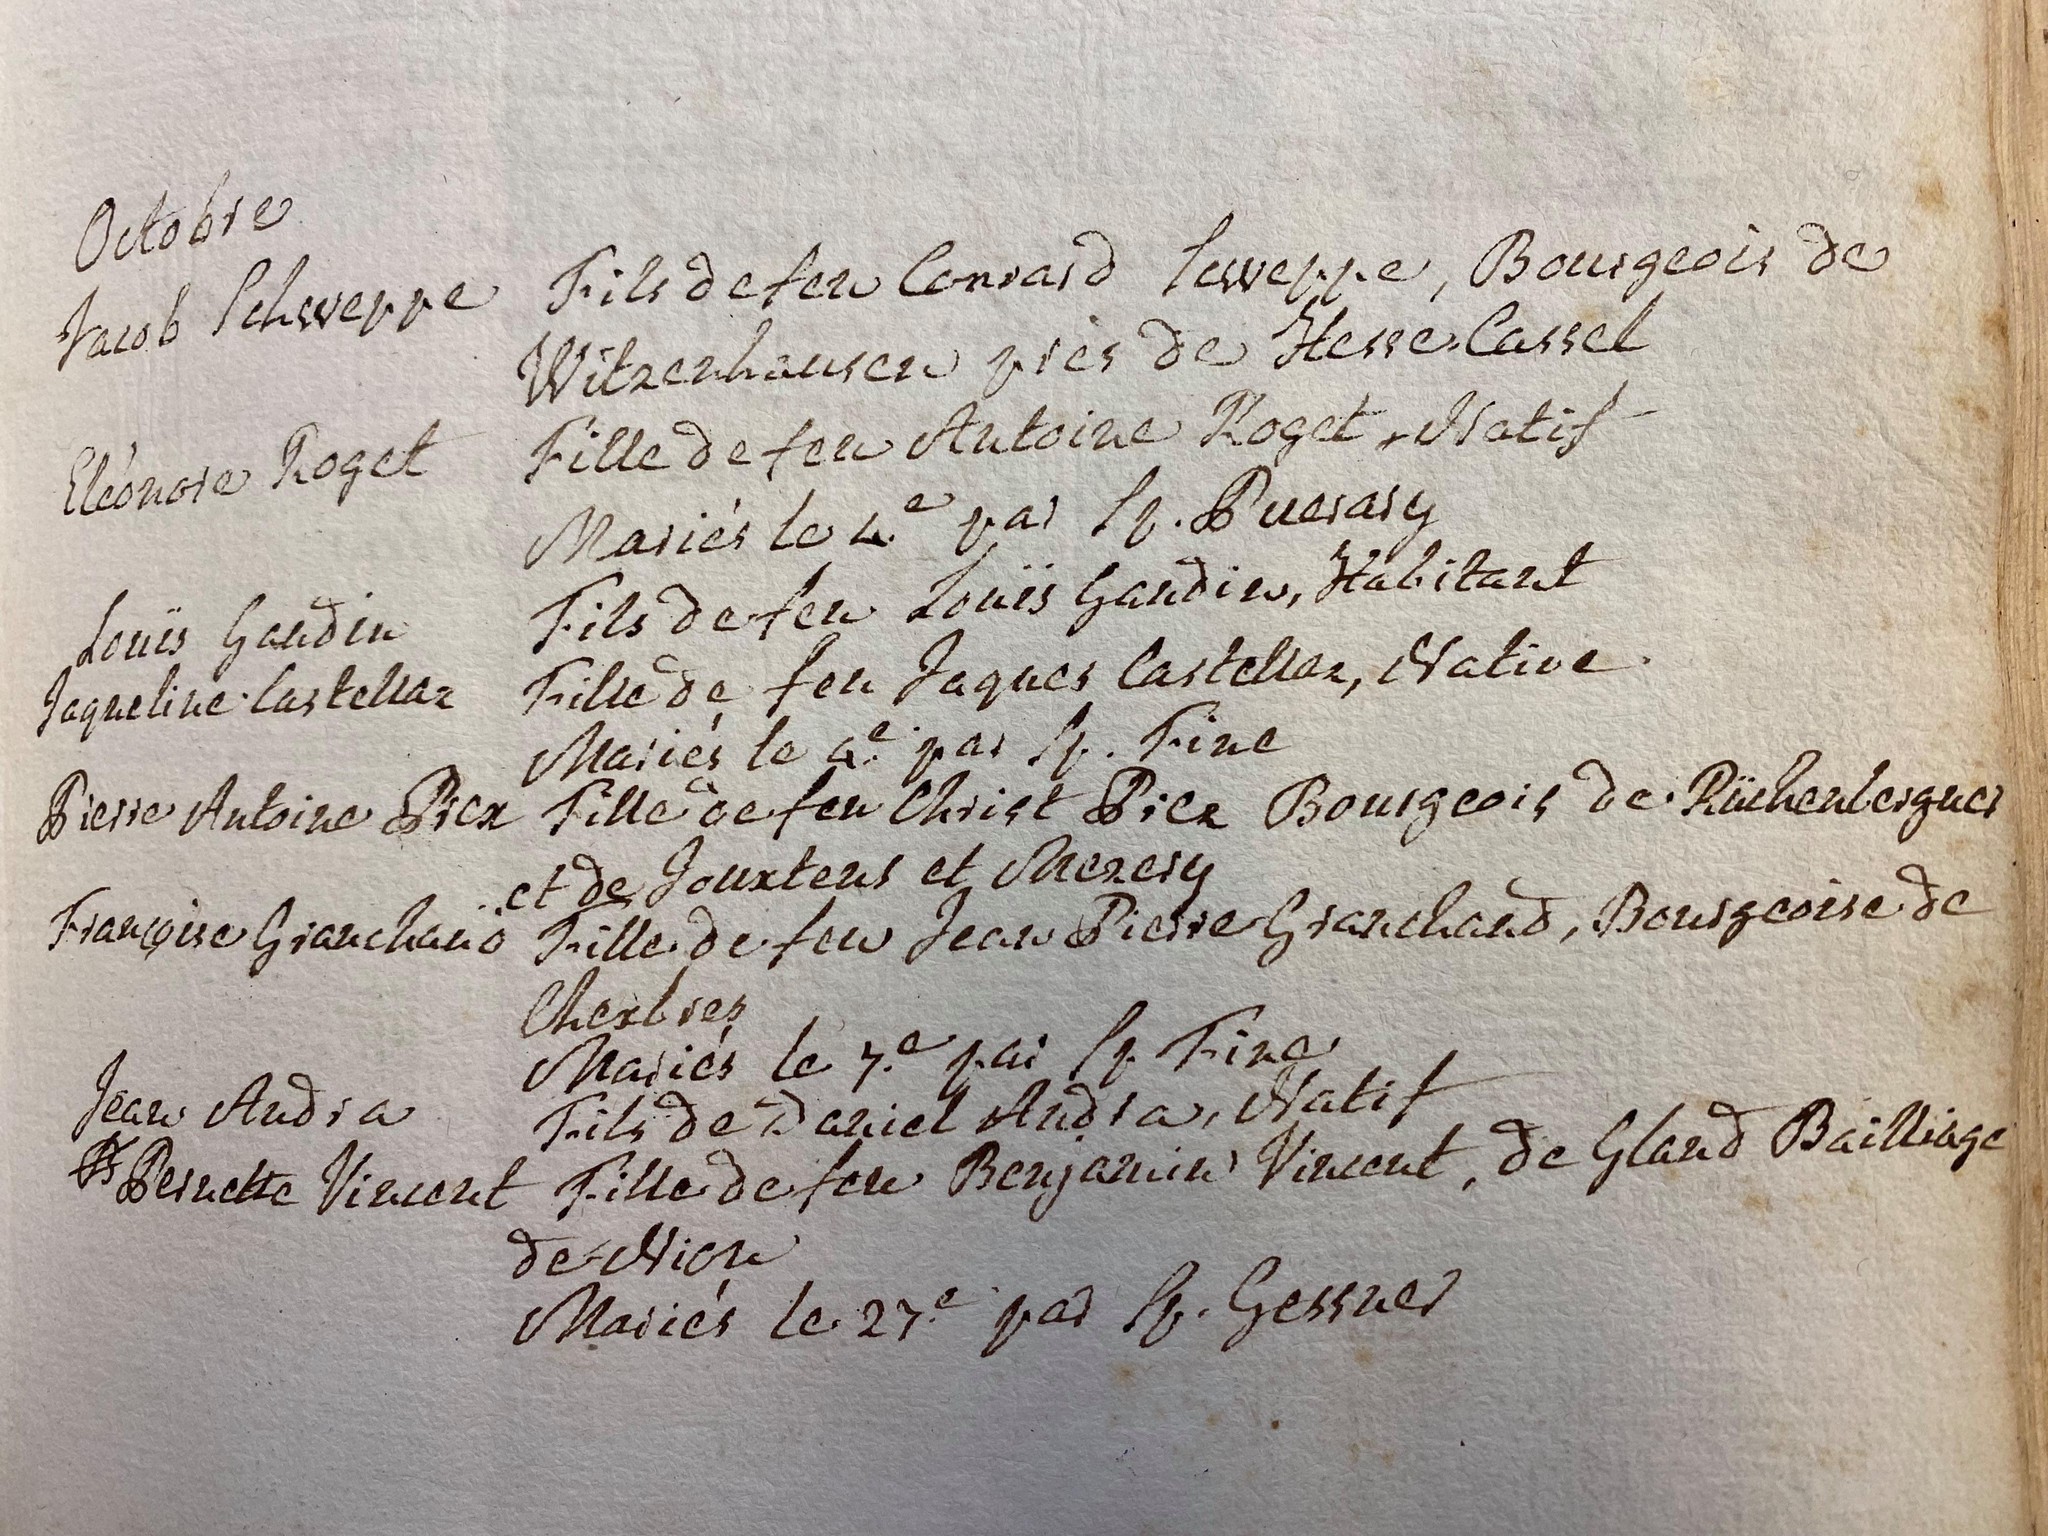 Octobre
Jacob Schweppe Fils de feu Conrard Scweppe, Bourgeois de
Witzenhausen près de Hesse-Cassel
Eléonore Roget Fille de feu Antoine Roget, Natif
Mariés le 4.e par Sp. Puerary
Louïs Gaudin Fils de feu Louïs Gaudin, Habitant
Jaqueline Castellaz Fille de feu Jaques Castellaz, Native
Mariés le 4.e par Sp. Fine
Pierre Antoine Piex Fille de feu Christ Piez Bourgeois de
et de Jouxtens et Mezery
Françoise Granchaud Fille de feu Jean Pierre Granchaud, Bourgeoise de
Chexbres
Mariés le 7.e par Sp Fine
Jean Andra Fils de Daniel Andra, Natif
Pernette Vincent Fille de feu Benjamin Vincent, de Gland Bailliage
de Nion
Mariés le 27.e par Sp. Gessner